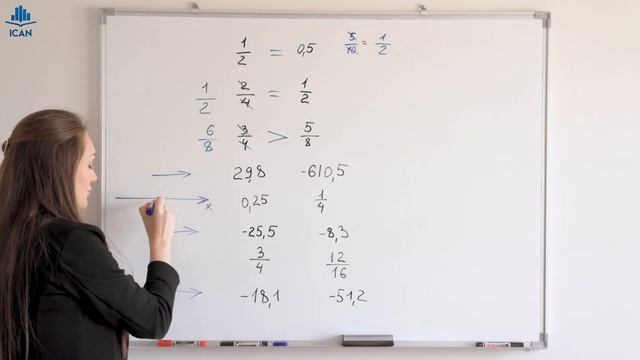 ICAN
1/2 = 0,5 5/10 = 1/2
1/2 2/4 = 1/2
6/8 3/4 > 5/8
29,8 -610,5
x 0,25 1/4
-25,5 -8,3
3/4 12/16
-18,1 -51,2